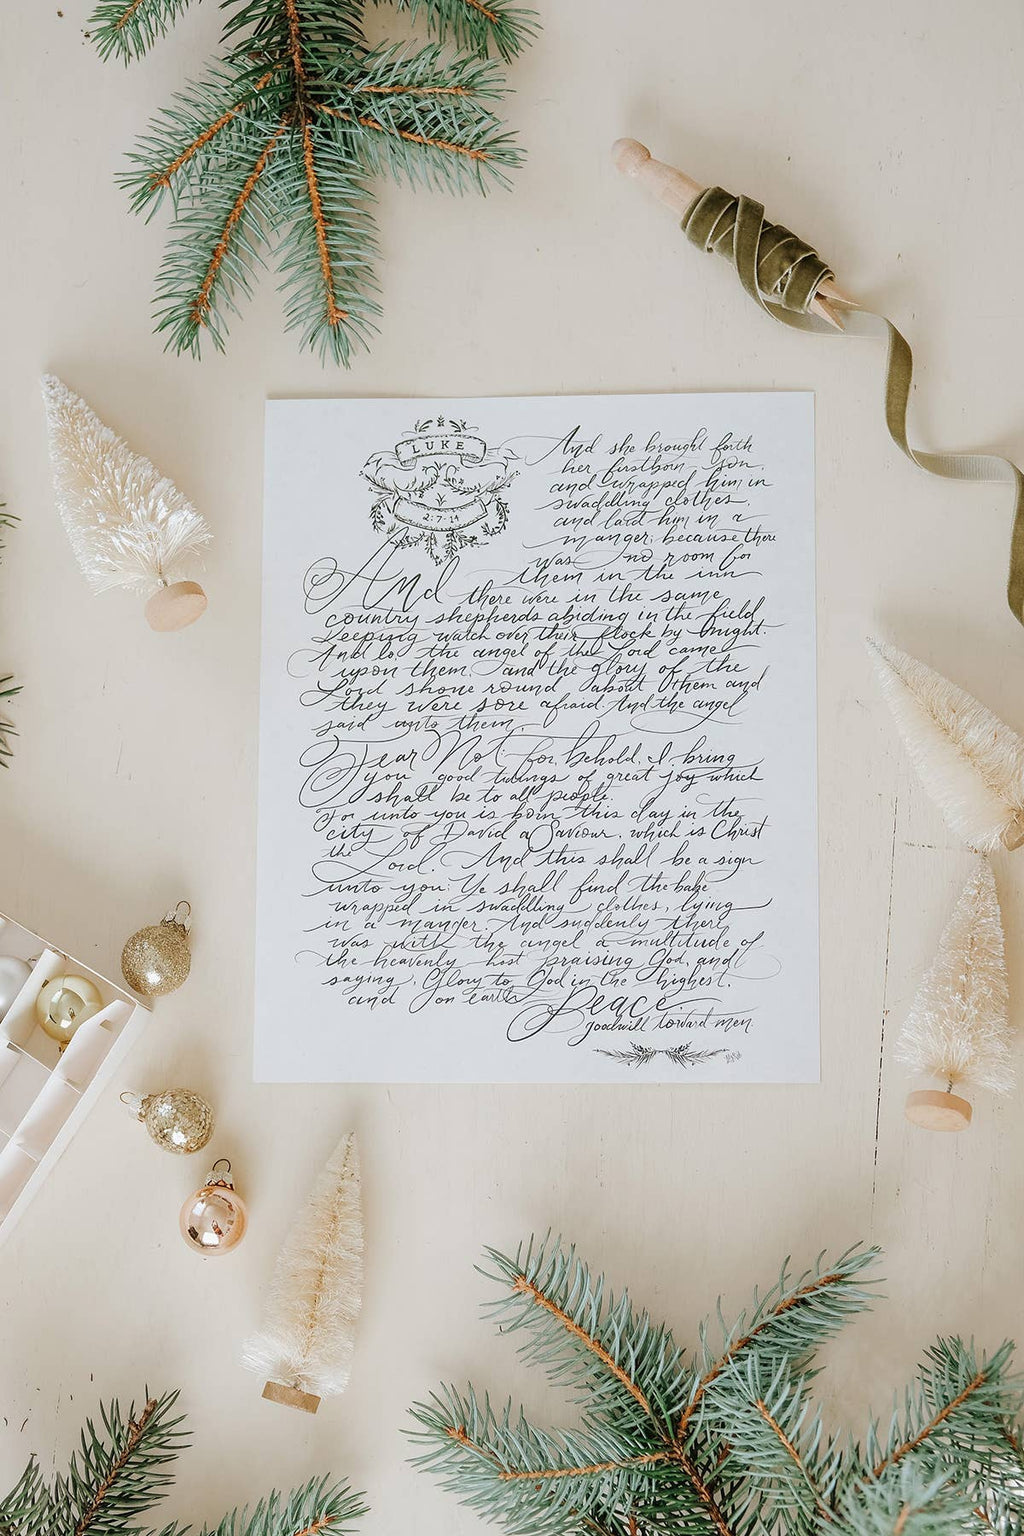 LUKE
2:7-14
And she brought forth
her firstborn son,
and wrapped him in
swaddling clothes,
and laid him in a
manger; because there
was no room for
them in the inn
And there were in the same
country shepherds abiding in the field
keeping watch over their flock by night.
And lo the angel of the Lord came
upon them, and the glory of the
Lord shone round about them and
they were sore afraid. And the angel
said unto them,
Fear Not: for, behold, I bring
you good tidings of great joy which
shall be to all people.
For unto you is born this day in the
city of David a Saviour, which is Christ
the Lord. And this shall be a sign
unto you: Ye shall find the babe
wrapped in swaddling clothes, lying
in a manger. And suddenly there
was with the angel a multitude of
the heavenly host praising God, and
saying, Glory to God in the highest,
and on earth Peace
goodwill toward men.